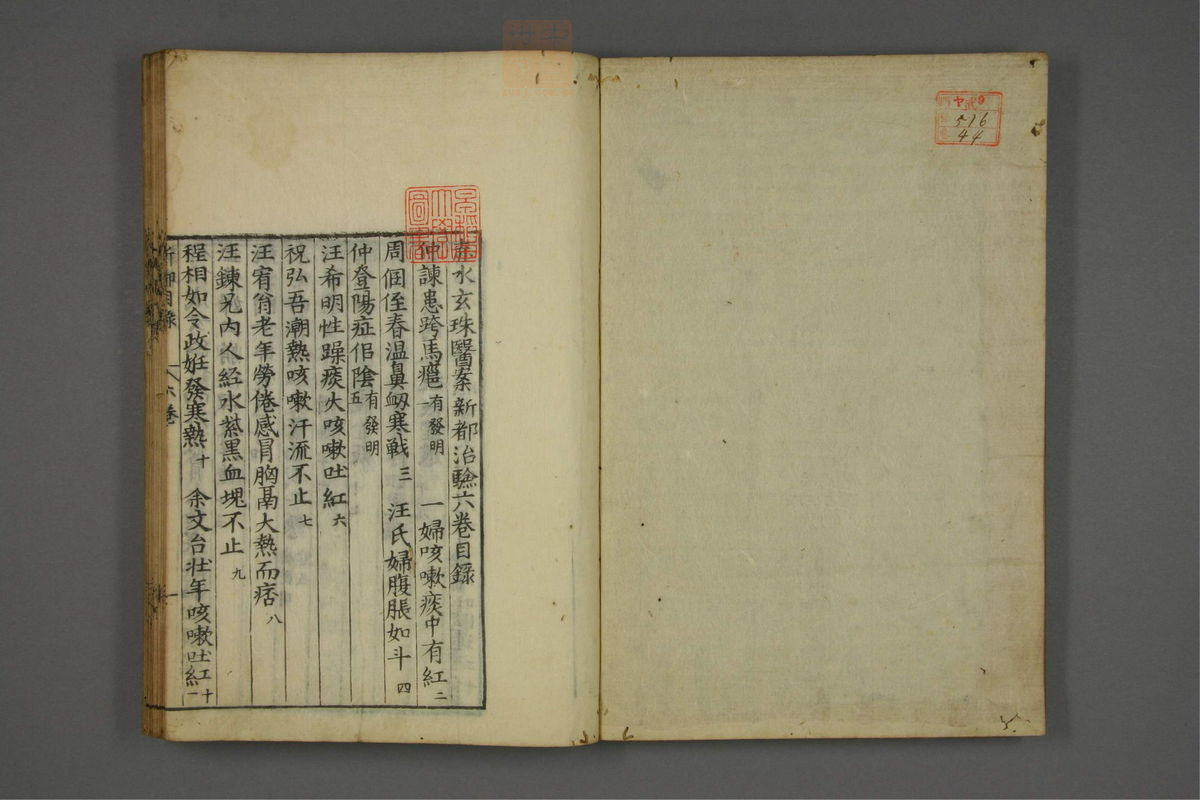 ヤ
9
516
44
水玄珠醫案新都治驗六卷目錄
仲諫患跨馬癰一有發明 一婦咳嗽痰中有紅二
周佃侄春温鼻衂寒戰三 汪氏婦腹脹如斗四
仲登陽症佀陰五有發明
汪希明性躁痰火咳嗽吐紅六
祝弘吾潮熱咳嗽汗流不止七
汪宥翁老年勞倦感冒胸鬲大熱而痞八
汪鍊兄内人經水紫黑血塊不止九
程相如令政姙發寒熱十 余文台壯年咳嗽吐紅十一
目錄 六卷 一